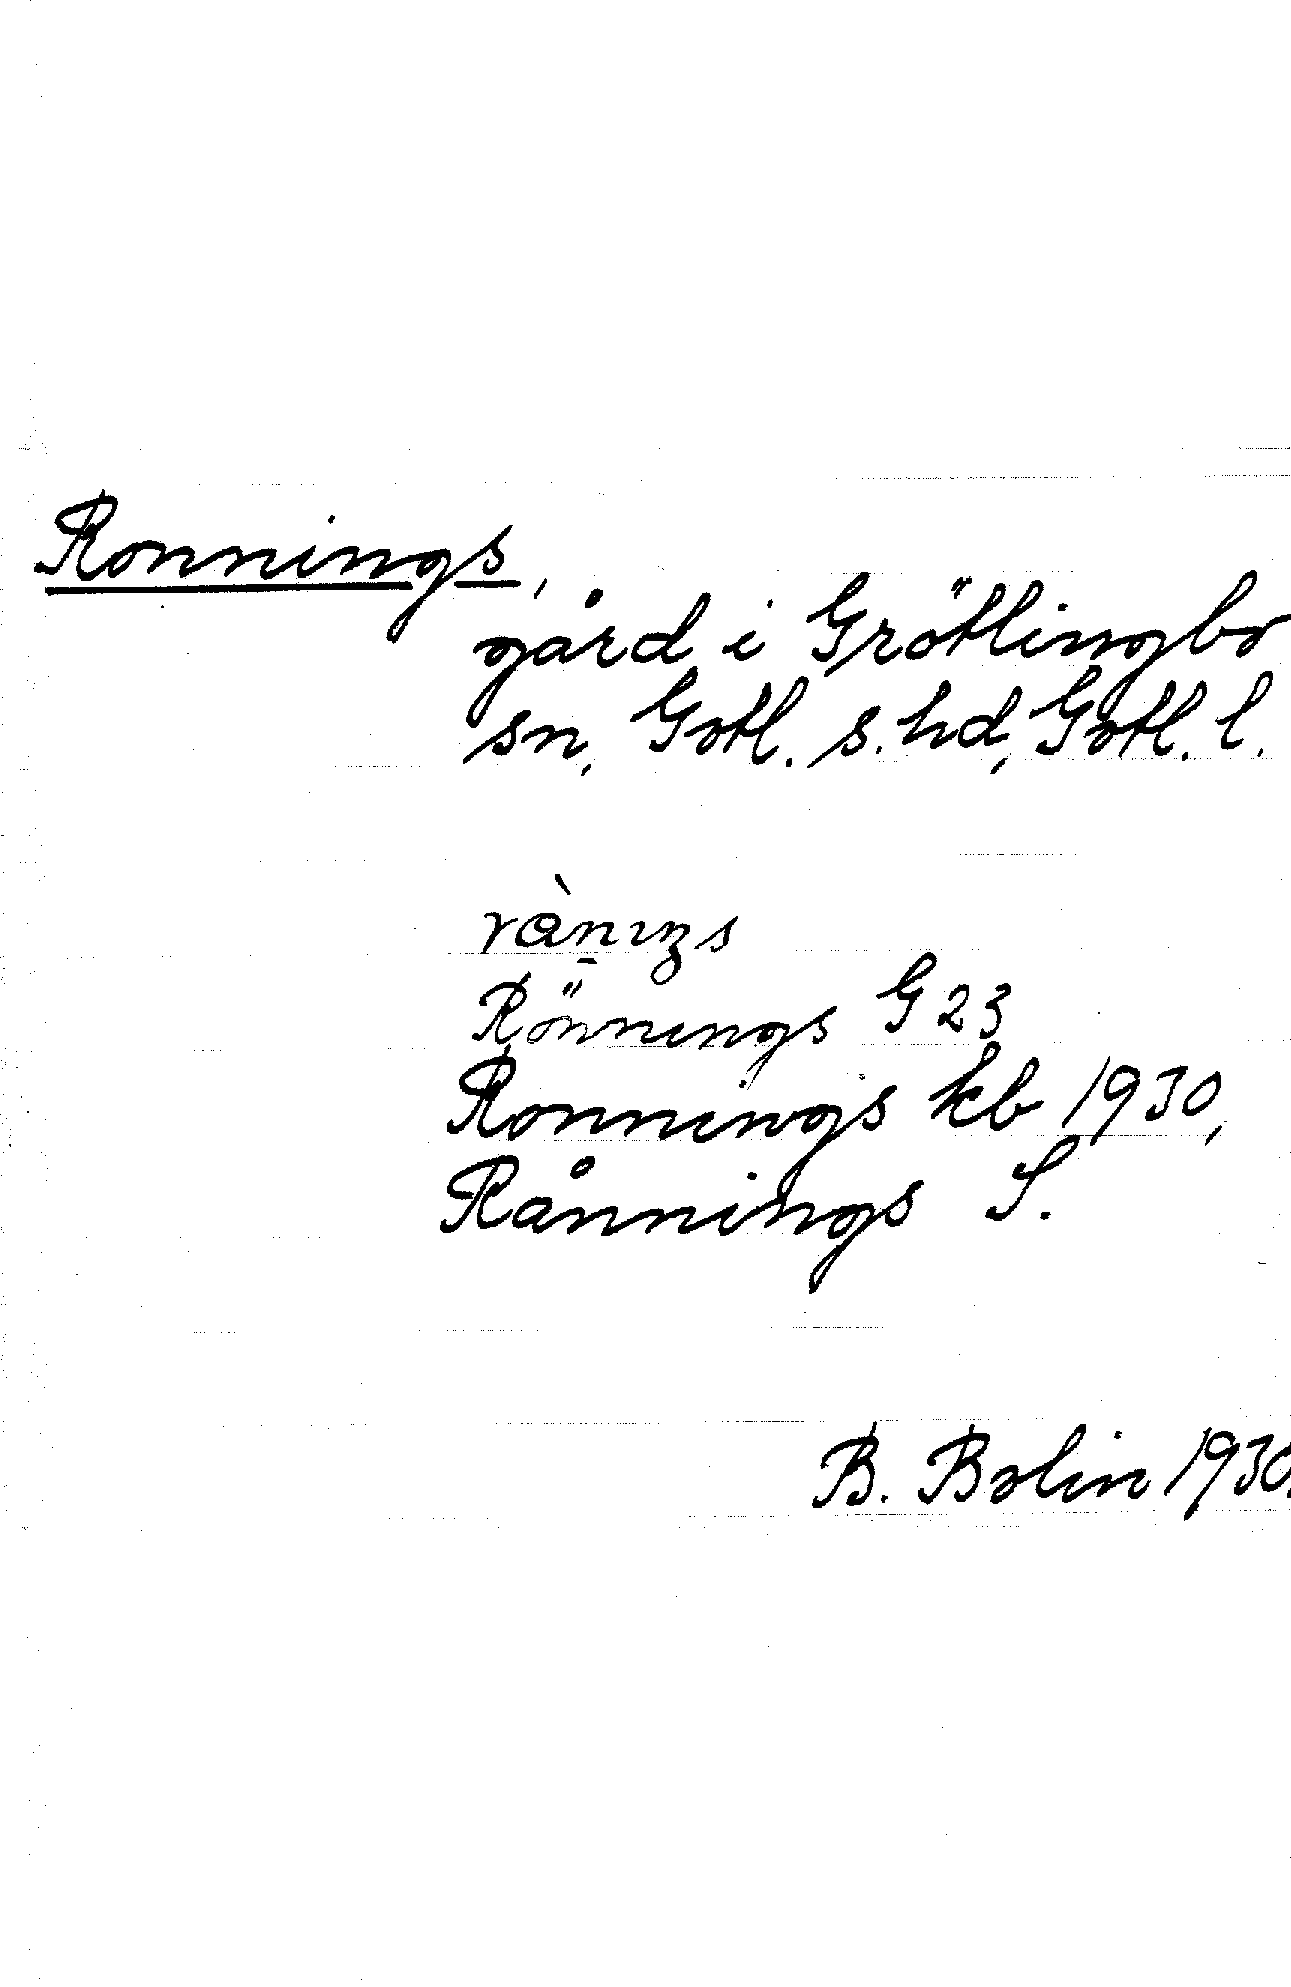 Ronnings,
gård i Grötlingbo
sn, Gotl. s. hd, Gotl. l.
Rönnings G 23
Ronnings kb 1930,
Rånnings S.
B. Bolin 1930.